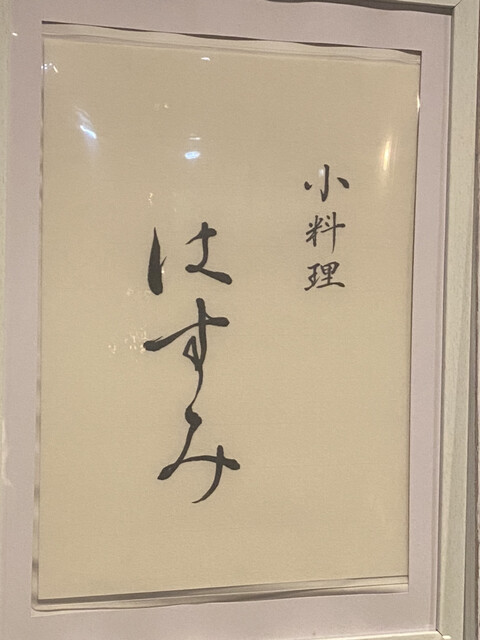 小料理
はすみ